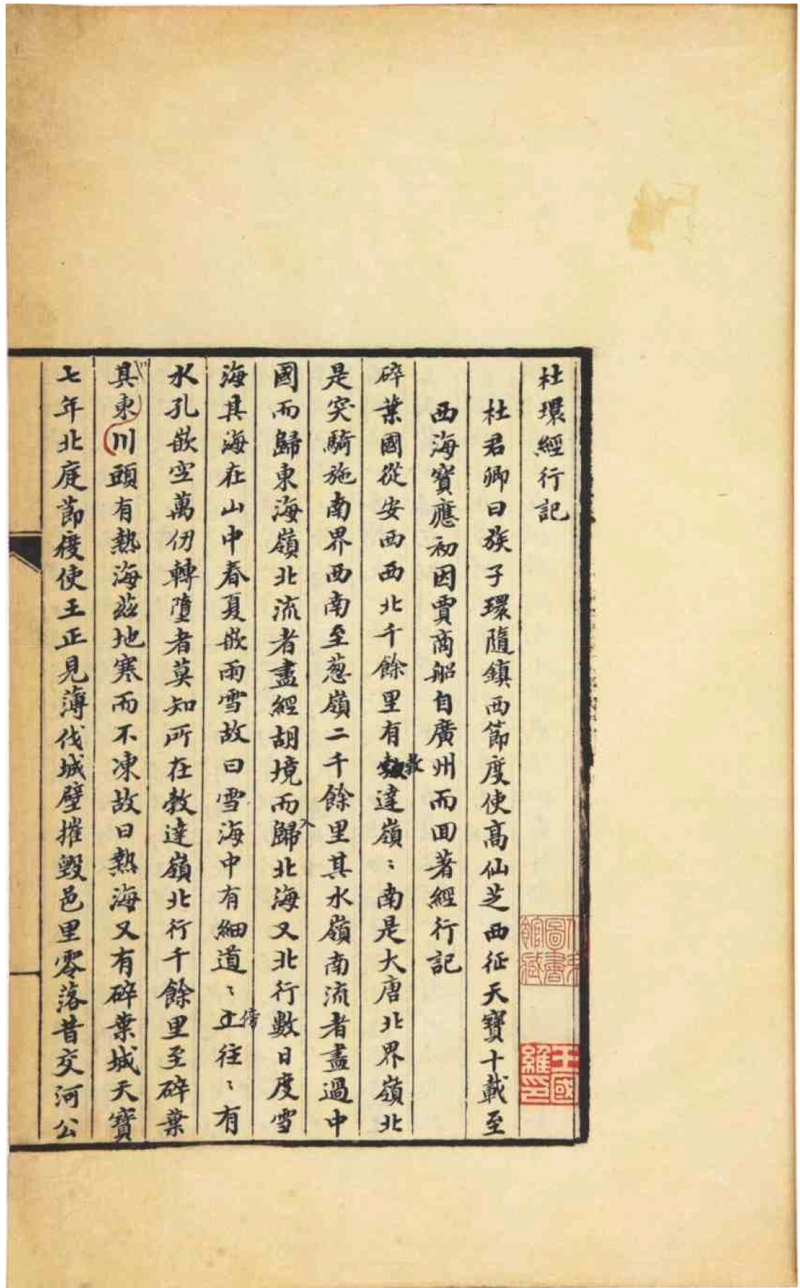 杜環經行記
杜君卿曰族子環隨鎮西節度使高仙芝西征天寶十載至
西海寶應初因賈商船自廣州而回著經行記
碎葉國從安西西北千餘里有教達嶺〻南是大唐北界嶺北
是突騎施南界西南至葱嶺二千餘里其水嶺南流者盡過中
國而歸東海嶺北流者盡經胡境而歸入北海又北行數日度雪
海其海在山中春夏嵌雨雪故曰雪海中有細道〻傍往〻有
水孔嵌空萬仞轉墮者莫知所在教達嶺北行千餘里至碎葉
其東川頭有熱海茲地寒而不凍故曰熱海又有碎葉城天寶
七年北庭節度使王正見薄伐城壁摧毀邑里零落昔交河公
王國維印